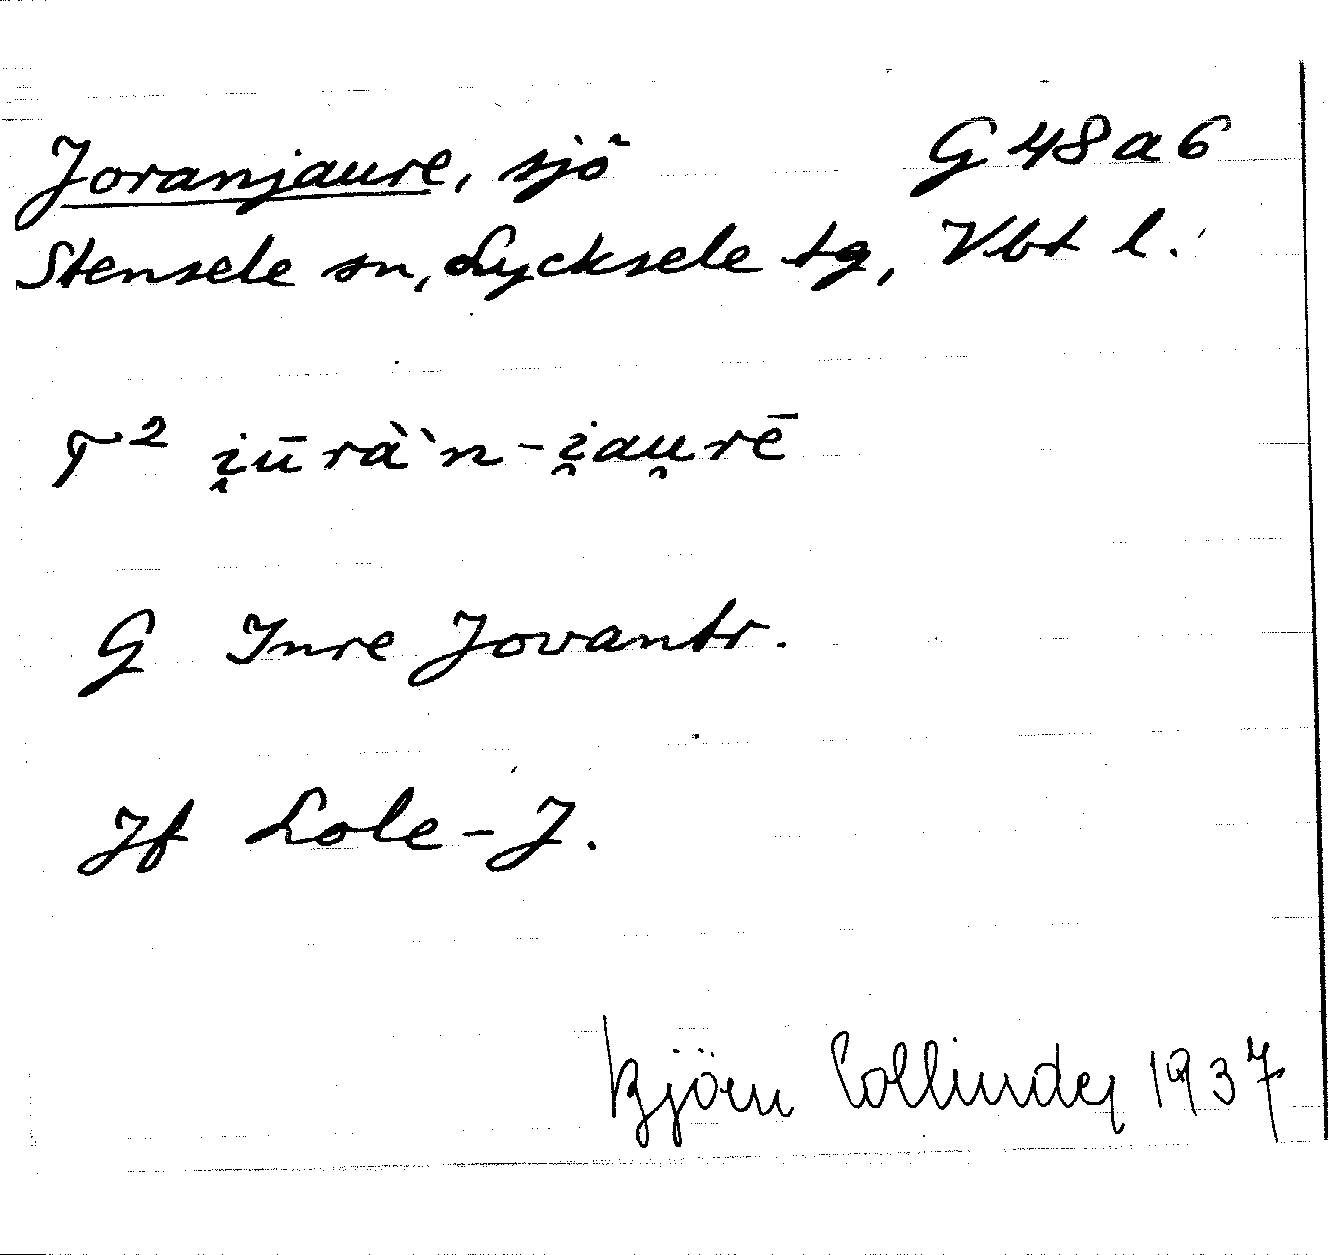 Joranjaure, sjö G 48 a 6
Stensele sn, Lycksele tg, Vbt l.
T² i̯ūrà`n-i̯au̯rē
G Inre Jovantr.
Jf Lole-J.
Björn Collinder 1937